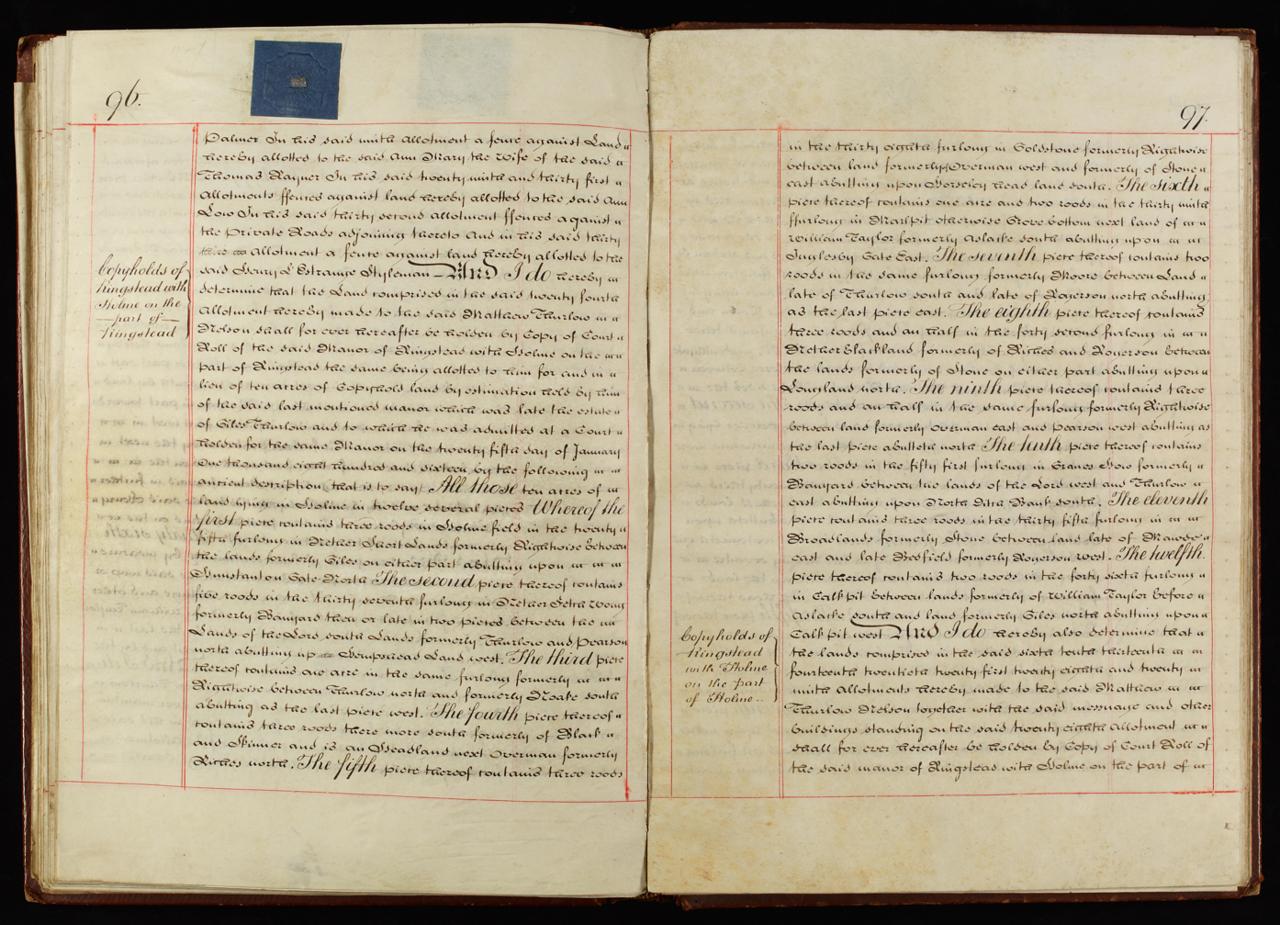 96.
Palmer In his said ninth Allotment a fence against Land
hereby allotted to the said Ann Mary the Wife of the said
Thomas Rayner In his said twenty ninth and thirty first
Allotments ffences against land hereby allotted to the said Ann
Low In his said thirty second allotment ffences against
the Private Roads adjoining thereto And in his said thirty
Allotment a fence against land hereby allotted to the
said Henry L'Estrange Styleman And I do hereby
determine that the Land comprised in the said twenty fourth
Allotment hereby made to the said Matthew Thurlow
Nelson shall for ever hereafter be holden by Copy of Court
Roll of the said Manor of Ringstead with Holme on the
part of Ringstead the same being allotted to him for and in
lieu of ten acres of Copyhold land by estimation held by him
of the said last mentioned manor which was late the estate
of Giles Thurlow and to which he was admitted at a Court
holden for the same Manor on the twenty fifth day of January
One thousand eight hundred and sixteen by the following
ancient description that is to say All those ten acres of
land lying in Holme in twelve several pieces Whereof the
first piece contains three roods in Holme field in the twenty
fifth furlong in Nether Short Lands formerly Rightwise between
the lands formerly Giles on either part abutting upon
Hunstanton Gate North The second piece thereof contains
five roods in the thirty seventh furlong in Nether Wong
formerly Banyard then or late in two pieces between the
Lands of the Lord south Lands formerly Thurlow and Pearson
north abutting up Hempstead Land west. The third piece
thereof contains one acre in the same furlong formerly
Rightwise between Thurlow north and formerly Noake south
abutting as the last piece west. The fourth piece thereof
contains three roods there more south formerly of Black
and Skinner and is an Headland next Overman formerly
Riches north. The fifth piece thereof contains three roods
Copyholds of
Ringstead with
Holme on the
part of
Ringstead
97.
in the thirty eighth furlong in Goldstone formerly Rightwise
between land formerly Overman west and formerly of Stone
east abutting upon head land south. The sixth
piece thereof contains one acre and two roods in the thirty ninth
ffurlong in Marlpit otherwise Grove bottom next land of
William Taylor formerly Aslacke south abutting upon
Inglesby Gate East. The seventh piece thereof contains two
roods in the same furlong formerly Moore between Land
late of Thurlow south and late of Rogerson north abutting
as the last piece east. The eighth piece thereof contains
three roods and an half in the forty second furlong in
Nether Blackland formerly of Riches and Rogerson between
the lands formerly of Stone on either part abutting upon
Longland north. The ninth piece thereof contains three
roods and an half in the same furlong formerly Rightwise
between land formerly Overman east and Pearson west abutting as
the last piece abutteth north The tenth piece thereof contains
two roods in the fifty first furlong in formerly
Banyard between the lands of the Lord west and Thurlow
east abutting upon North Bank south. The eleventh
piece contains three roods in the thirty fifth furlong in
Broadlands formerly Stone between land late of
east and late Bedfield formerly Rogerson west. The twelfth
piece thereof contains two roods in the forty sixth furlong
in Calk pit between lands formerly of William Taylor before
Aslacke south and land formerly Giles north abutting upon
Calk pit west And I do hereby also determine that
the lands comprised in the said sixth tenth thirteenth
fourteenth twentieth twenty first twenty eighth and twenty
ninth Allotments hereby made to the said Matthew
Thurlow Nelson together with the said messuage and other
buildings standing on the said twenty eighth Allotment
shall for ever hereafter be holden by Copy of Court Roll of
the said manor of Ringstead with Holme on the part of
Copyholds of
Ringstead
with Holme
on the part
of Holme